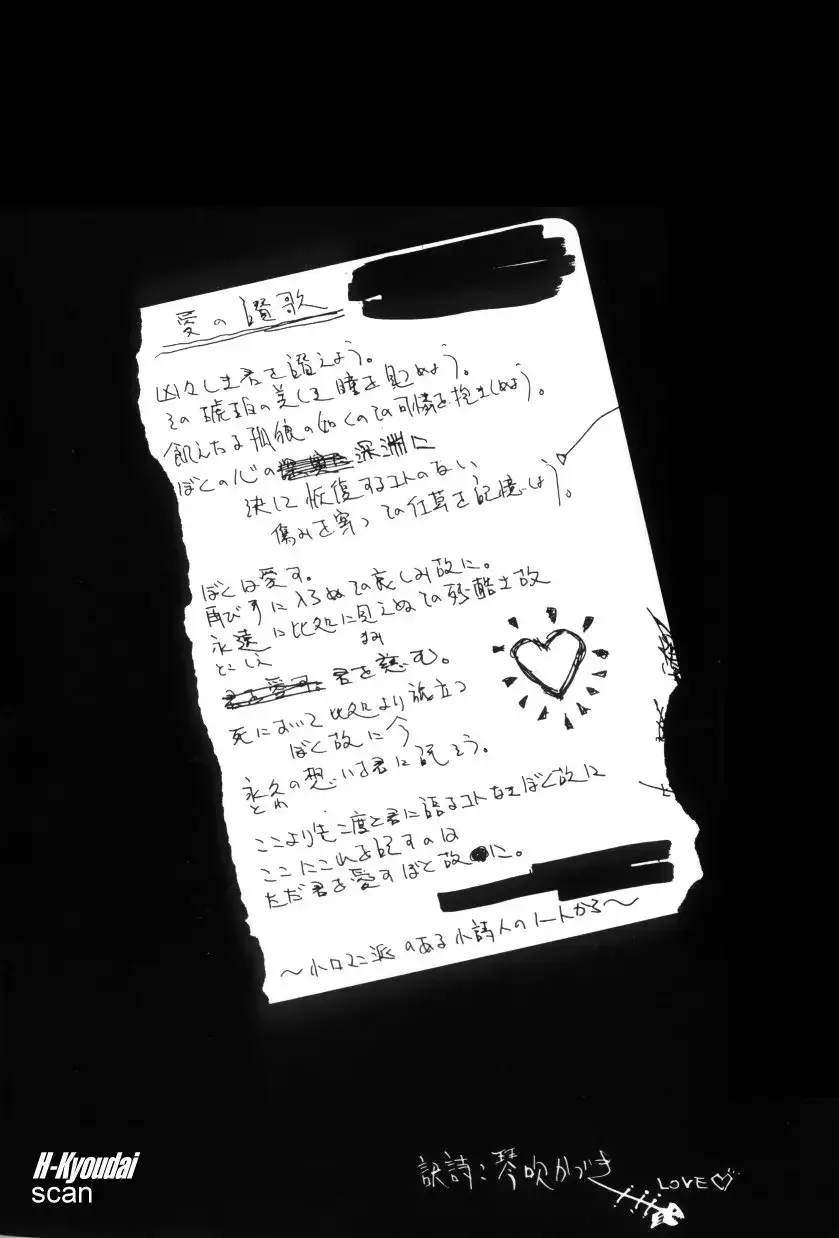 愛の讃歌
凶々しき君を讃えよう。
その琥珀の美しき瞳を見つめよう。
飢えたる孤狼の如くのその可憐を抱きしめよう。
ぼくの心の 深淵に
決して恢復するコトのない
傷みを穿つその仕草を記憶しよう。
ぼくは愛す。
再び手に入らぬその哀しみ故に。
永遠に此処に見えぬその残酷さ故
とこしえ
まみ
君を愛す。君を慈む。
死において此処より旅立つ
ぼく故に今
永久の想いを君に託そう。
とわ
ここよりも二度と君に語るコトなきぼく故に
ここにこれを記すのは
ただ君を愛すばと故に。
〜小ロマン派のある小詩人のノートから〜
訳詩:琴吹かづき
LOVE♡
H-Kyoudai
scan